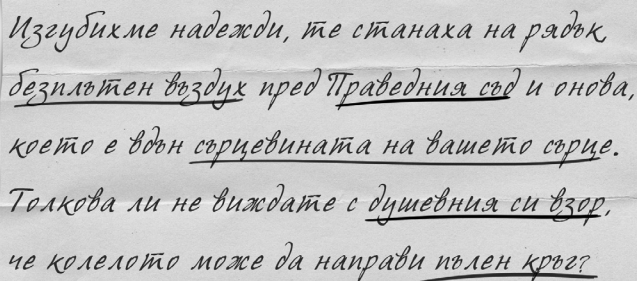 Изгубихме надежди, те станаха на рядък
безплътен въздух пред Праведния съд и онова,
което е вдън сърцевината на вашето сърце.
Толкова ли не виждате с душевния си взор,
че колелото може да направи пълен кръг?